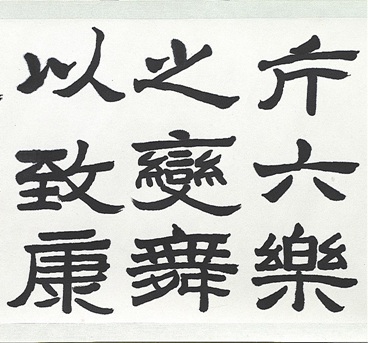 斤六樂
之變舞
以致康